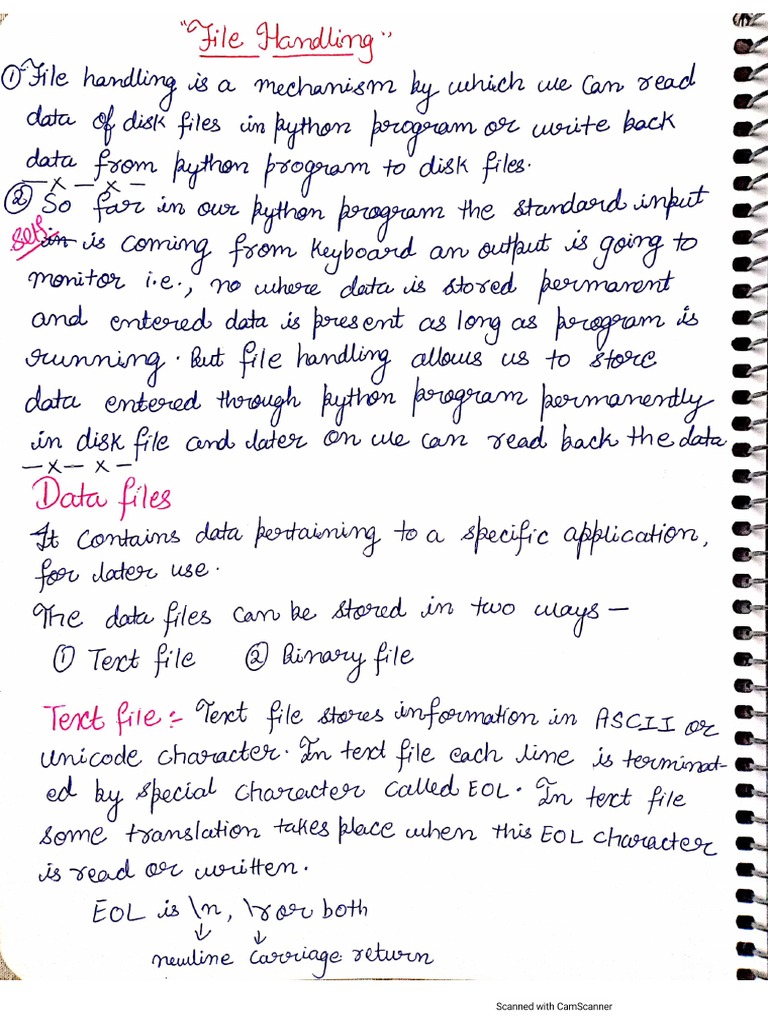 "File Handling"
① File handling is a mechanism by which we can read
data of disk files in python program or write back
data from python program to disk files.
— x — x —
② So far in our python program the standard input
self in is coming from keyboard an output is going to
monitor i.e., no where data is stored permanent
and entered data is present as long as program is
running. But file handling allows us to store
data entered through python program permanently
in disk file and later on we can read back the data
— x — x —
Data files
It contains data pertaining to a specific application,
for later use.
The data files can be stored in two ways —
① Text file ② Binary file
Text file :- Text file stores information in ASCII or
unicode character. In text file each line is terminat-
ed by special character called EOL. In text file
some translation takes place when this EOL character
is read or written.
EOL is \n, \r or both
↓ ↓
newline carriage return
Scanned with CamScanner